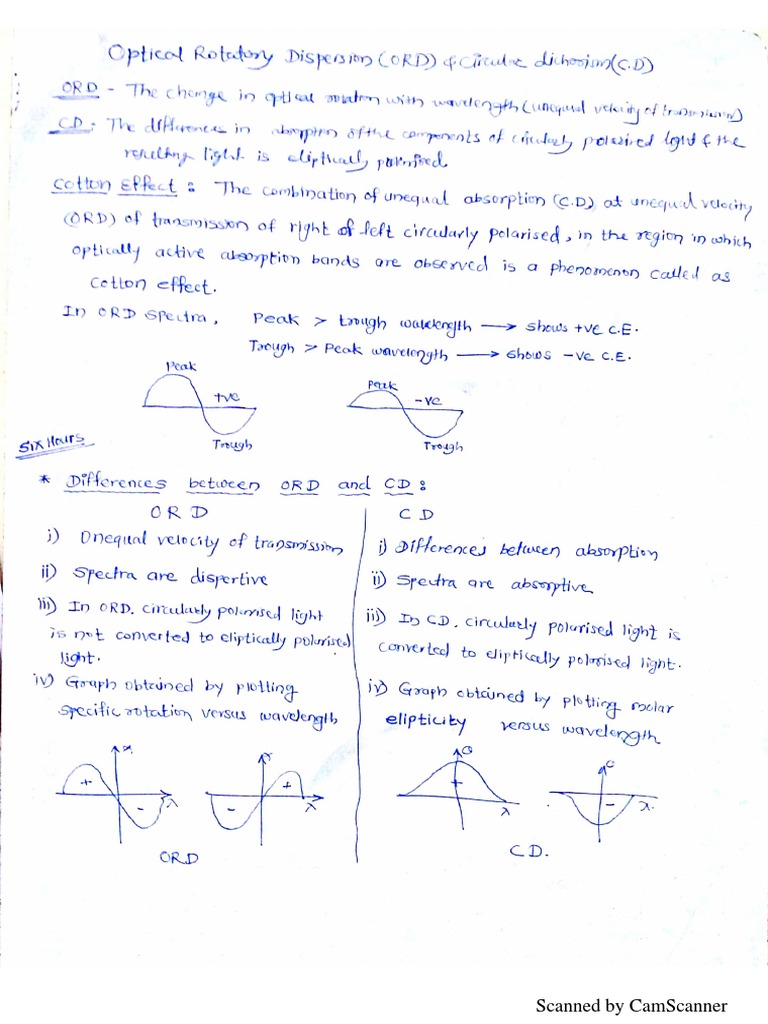 Optical Rotatory Dispersion (ORD) & Circular dichorism (C.D)
ORD - The change in optical rotation with wavelength (unequal velocity of transmission)
CD: The differences in absorption of the components of circularly polarized light & the
resulting light is eliptically polarised.
Cotton Effect: The combination of unequal absorption (C.D) at unequal velocity
(ORD) of transmission of right of left circularly polarised, in the region in which
optically active absorption bands are observed is a phenomenon called as
cotton effect.
In ORD spectra, Peak > trough wavelength → shows +ve C.E.
Trough > Peak wavelength → shows -ve C.E.
Peak Peak
+ve -ve
Trough Trough
Six Hours
* Differences between ORD and CD:
ORD
i) Unequal velocity of transmission
ii) Spectra are dispertive
iii) In ORD. circularly polarised light
is not converted to eliptically polarised
light.
iv) Graph obtained by plotting
specific rotation versus wavelength
+ - λ - + λ
ORD
CD
i) Differences between absorption
ii) Spectra are absorptive
iii) In CD. circularly polarised light is
converted to eliptically polarised light.
iv) Graph obtained by plotting molar
elipticity versus wavelength
+ λ - λ
CD.
Scanned by CamScanner